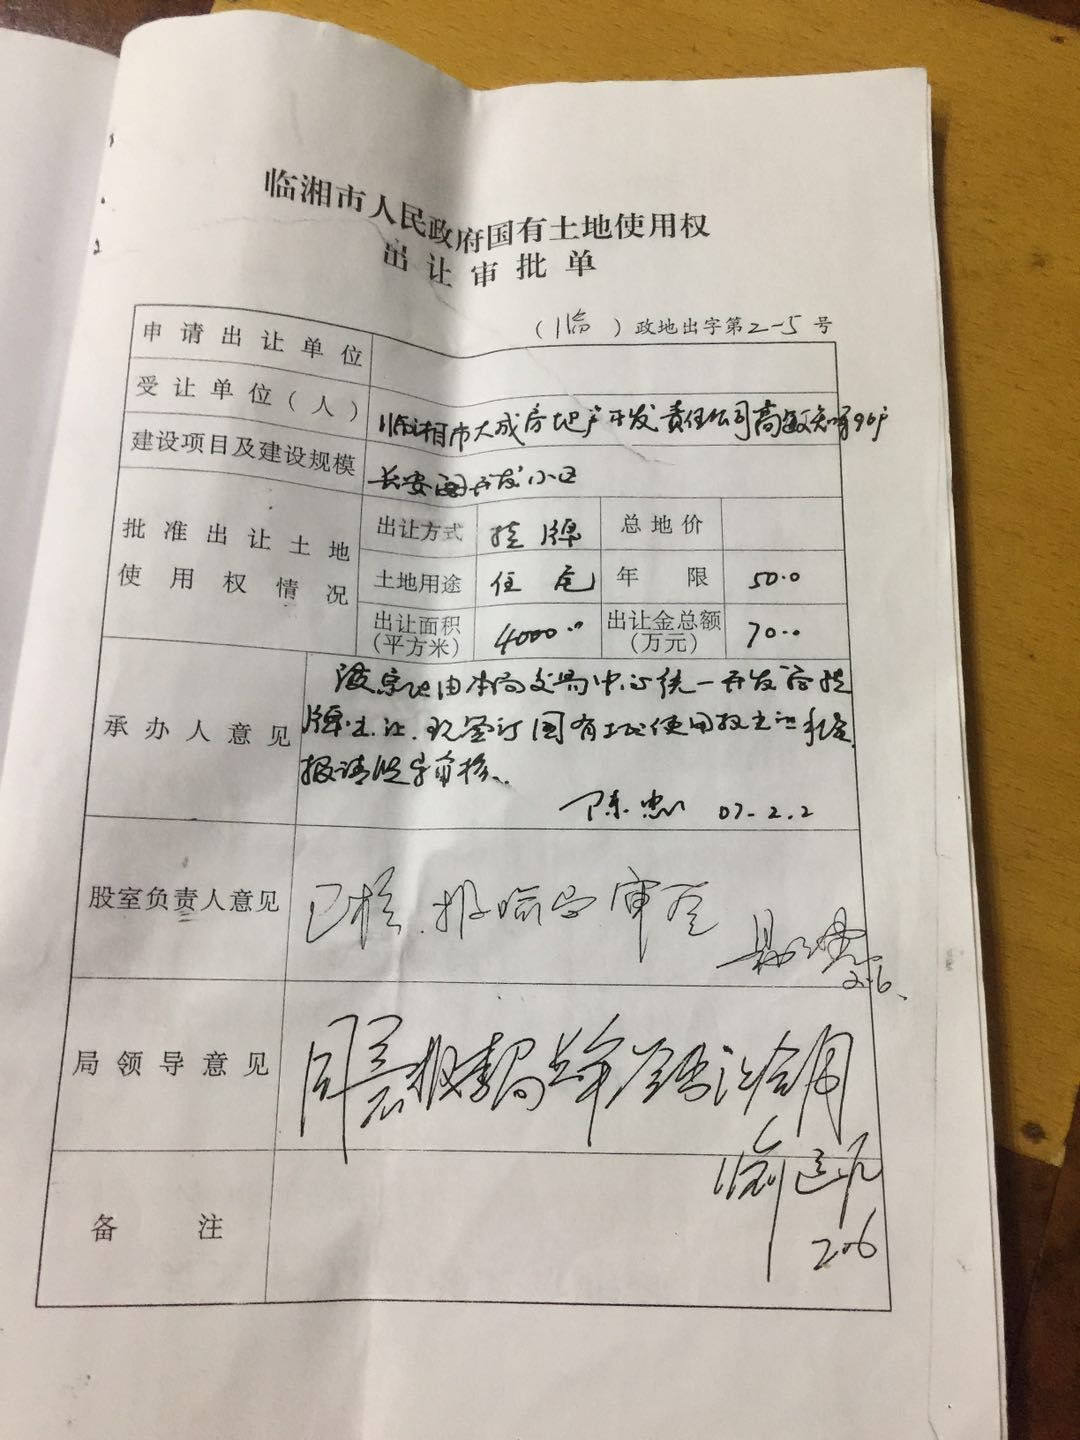 临湘市人民政府国有土地使用权
出让审批单
(临)政地出字第2-5号
申请出让单位
受让单位(人) 临湘市大成房地产开发责任公司高
建设项目及建设规模 长安 开发小区
批准出让土地使用权情况
出让方式 挂牌 总地价
土地用途 住宅 年限 50.0
出让面积(平方米) 4000 出让金总额(万元) 70
承办人意见
该宗地由本局交易中心统一开发后挂
牌出让.现签订国有土地使用权出让
报请领导审核.
陈忠 07.2.2
股室负责人意见
已核.报 审
2.6.
局领导意见
同意报
2.6
备注